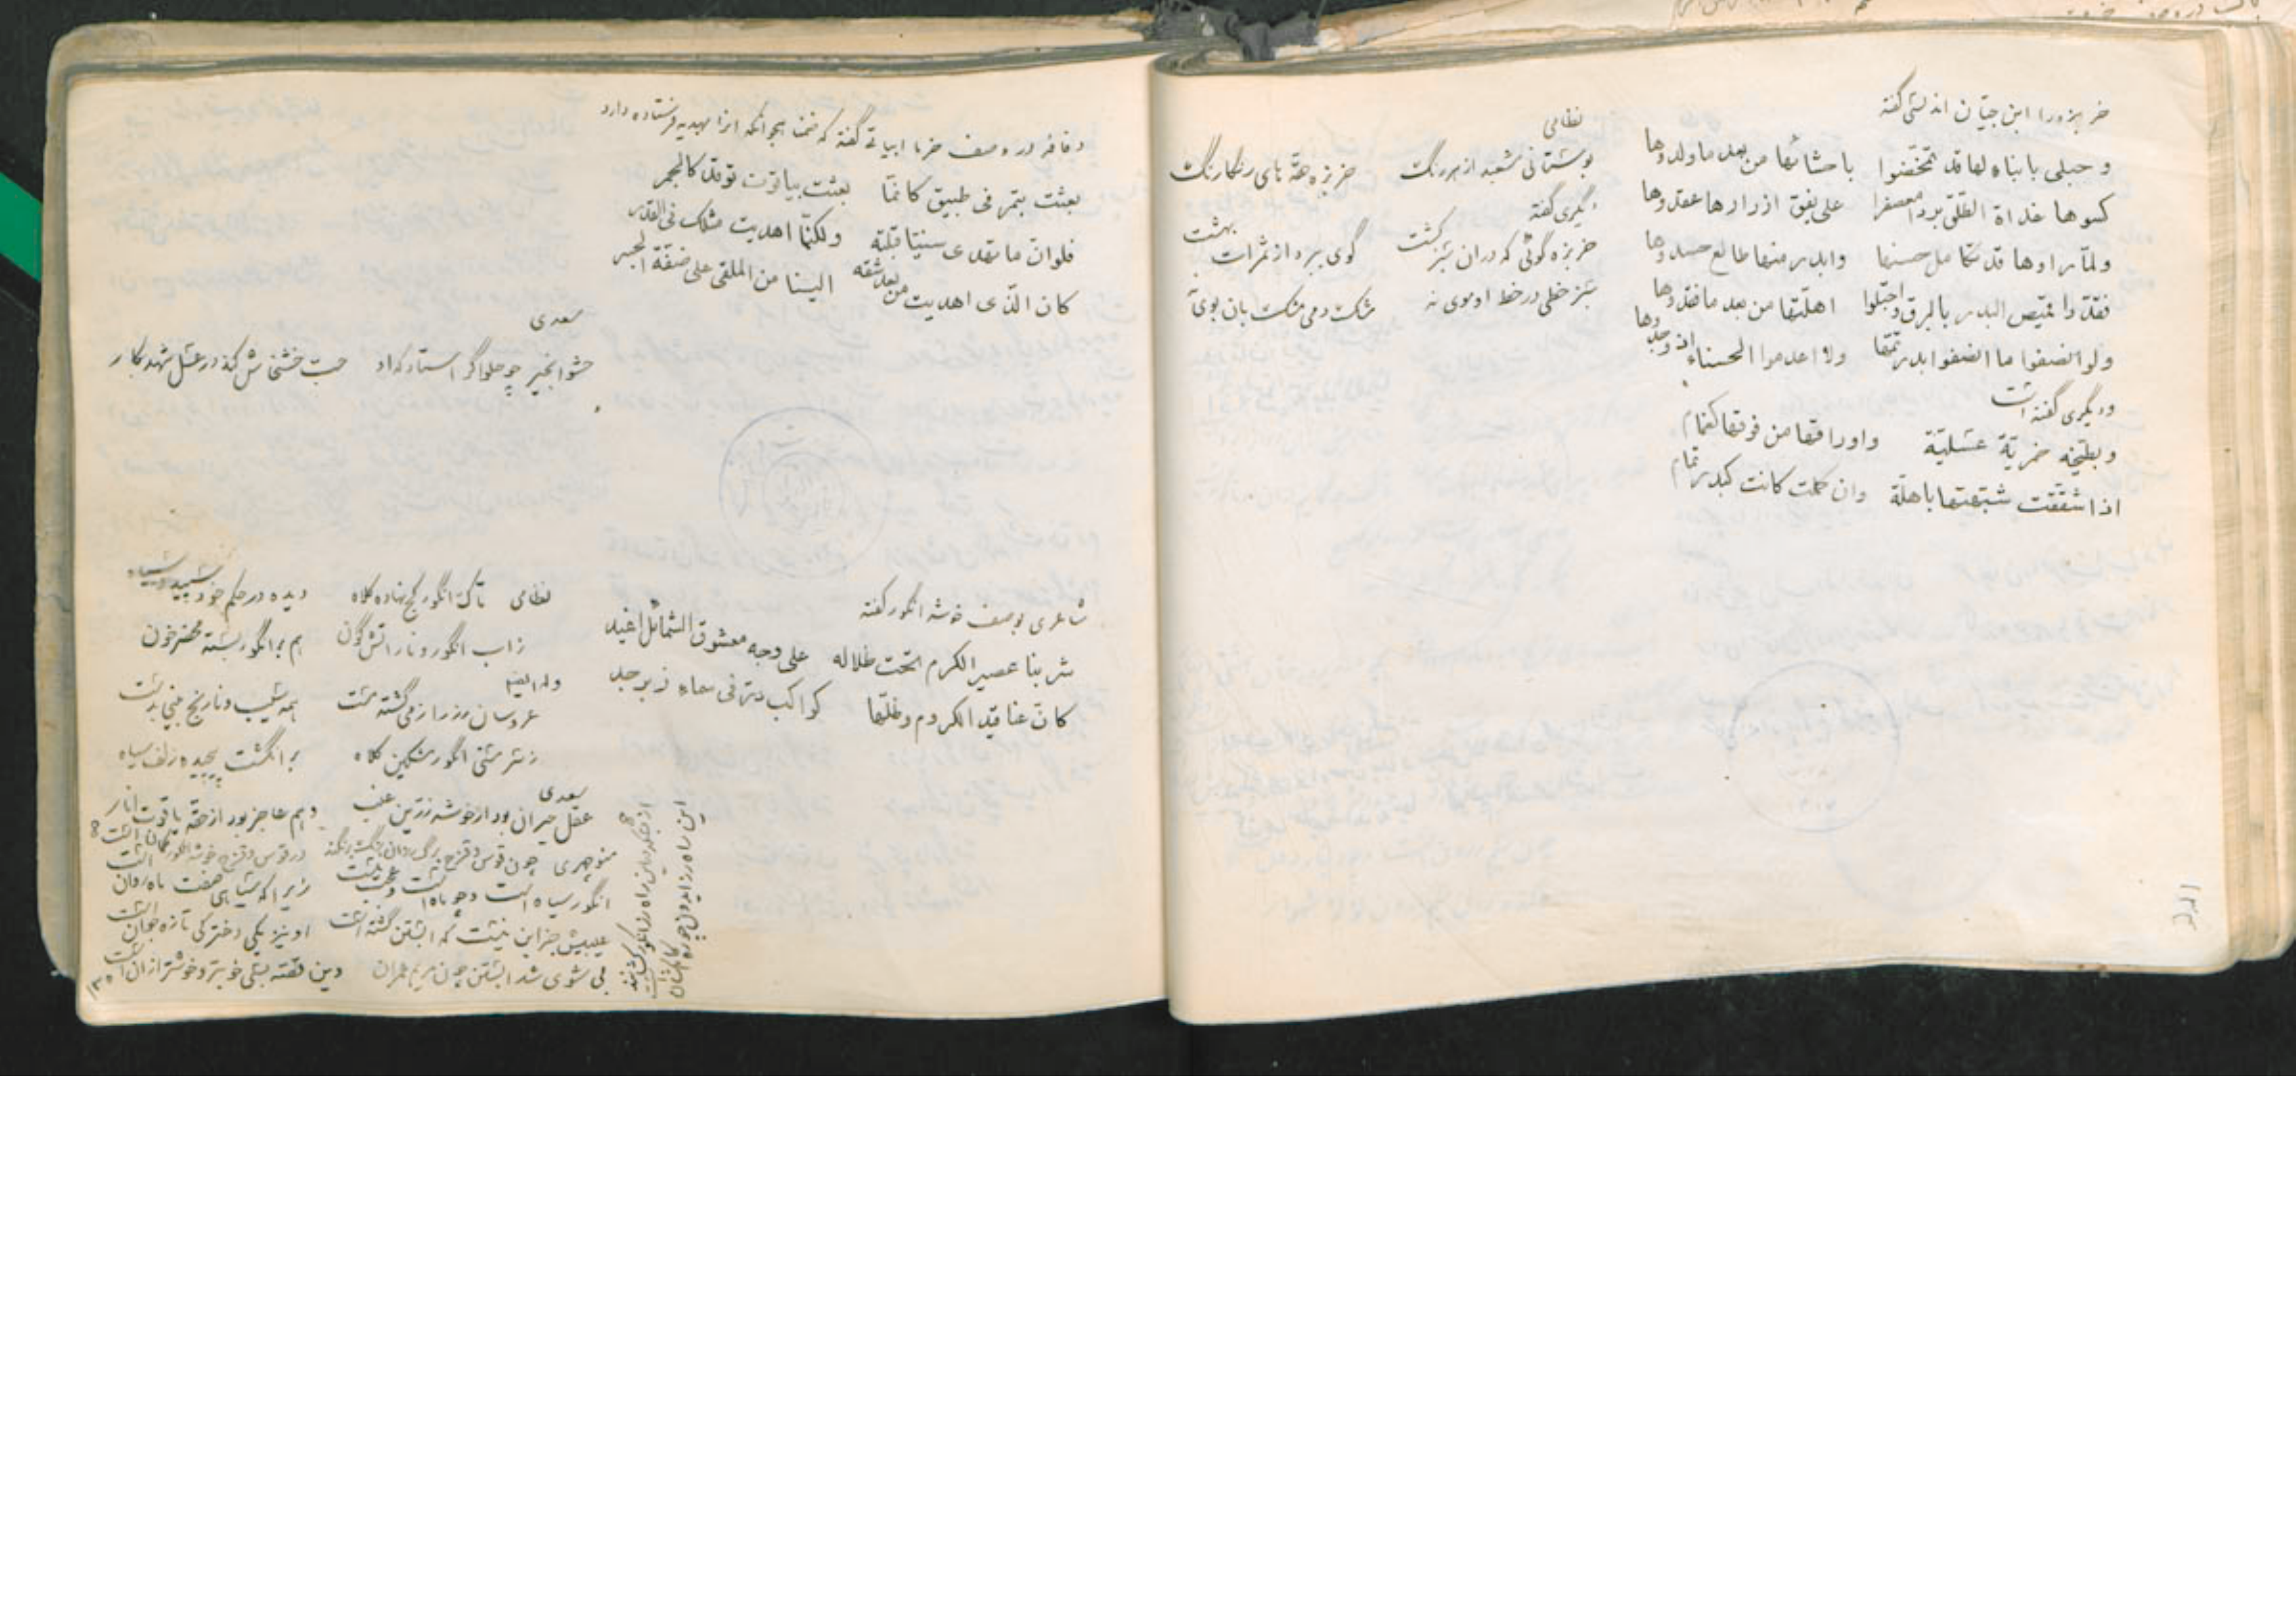 خربزه را ابن حیان اندلسی گفته
و حبلی بابناء لها قد تمخضوا باحشائها من بعد ما ولدوها
کسوها غداة الطلق بردا معصفرا علی یفق ازرارها عقدوها
ولما راوها قد تکامل حسنها وابدر منها طالع حسدوها
فقدوا قمیص البدر بالبرق واجتلوا اهلتها من بعد ما فقدوها
ولو انصفوا ما انصفوا بدر تمها ولا اعدموا الحسناء اذ وجدوها
و دیگری گفته است
و بطیخة خمریة عسلیة واوراقها من فوقها کغمام
اذا شققت شبهتها باهلة وان کملت کانت کبدر تمام
نظامی
بوستانی شعبد از هر رنگ خربزه حقه های رنگارنگ
دیگری گفته
خربزه گوئی که در ان سبز کشت گوی ببرد از ثمرات بهشت
سبز خطی در خط او موی نه مشک دمی مشک بان بوی
در وصف خرما ابیاتی گفته که ضمنا هجو انکه انرا بهدیه فرستاده دارد
بعثت بتمر فی طبیق کانما بعثت بیاقوت توقد کالجمر
فلوان ما تهدی سنیا قبلته ولکنما اهدیت مثلک فی القدر
کان الذی اهدیت من بعد شقه الینا من الملقی علی ضفة الجسر
سعدی
حشو انجیر چو حلواگر استاد که او حب خشخاش کند در عسل شهد بکار
شاعری بوصف خوشه انگور گفته
شربنا عصیر الکرم تحت ظلاله علی وجه معشوق الشمائل اغید
کان عناقید الکروم وظلها کواکب در فی سماء زبرجد
نظامی تاک انگور کج نهاده کلاه دیده در حکم خود سپید و سیاه
زاب انگور و نار اتش گون هم بر انگور بسته محضر خون
وله ایضا
عروسان رز را ز می گشته مست همه سیب و نارنج بینی بدست
ز سر مستی انگور مشکین کلاه بر انگشت پیچیده زلف سیاه
سعدی
عقل حیران بود از خوشه زرین عنب وهم عاجز بود از حقه یاقوت انار
منوچهری چون قوس و قزح برگ رزان رنگ برنگند در قوس و قزح خوشه انگور گمان است
انگور سیاه است و چو ماه است و عجب نیست زیرا که سیاهی صفت ماه روان است
عیبیش جز این نیست که ابستن گشته است او نیز یکی دخترکی تازه جوان است
بی شوی شد ابستن چون مریم عمران وین قصه بسی خوبتر و خوشتر از ان است
۱۳۰